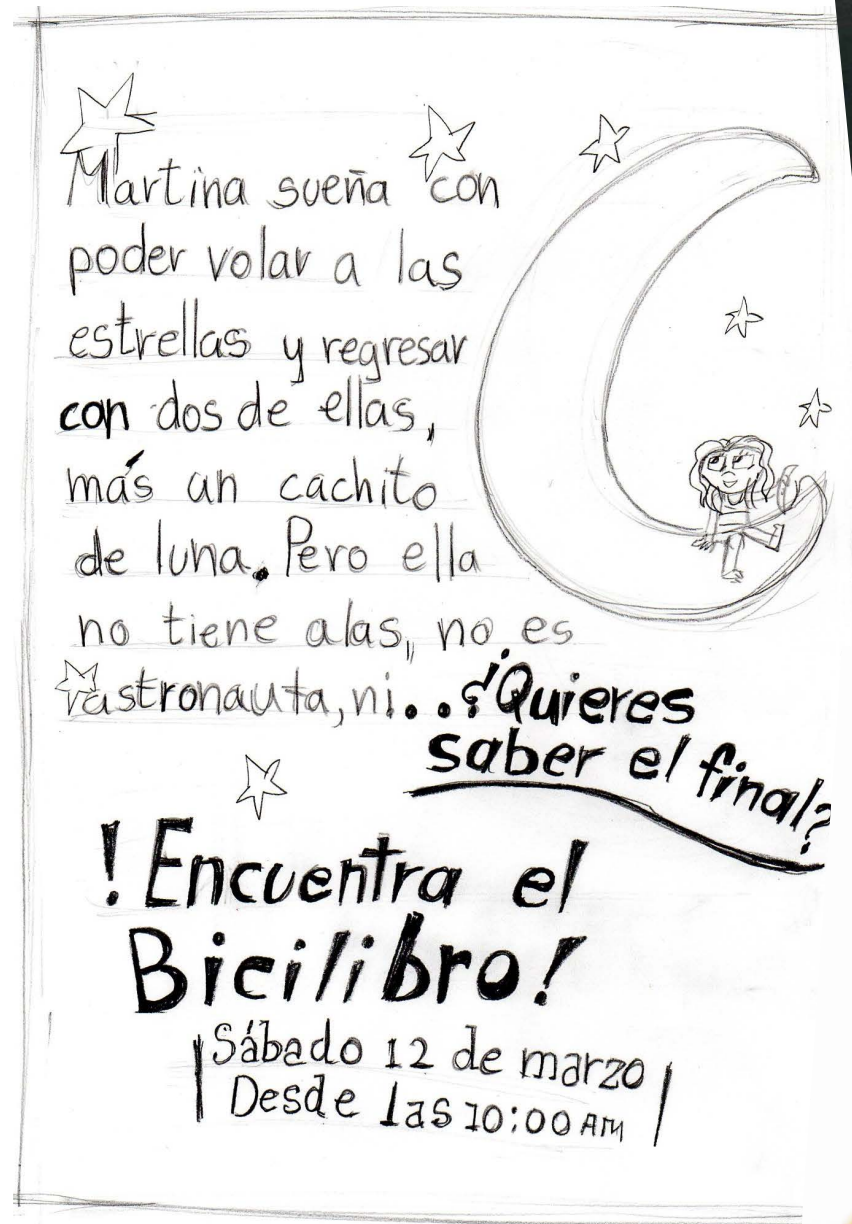 Martina sueña con
poder volar a las
estrellas y regresar
con dos de ellas,
más un cachito
de luna. Pero ella
no tiene alas, no es
astronauta, ni...¿Quieres
saber el final?
! Encuentra el
Bicilibro!
Sábado 12 de marzo
Desde las 10:00 AM